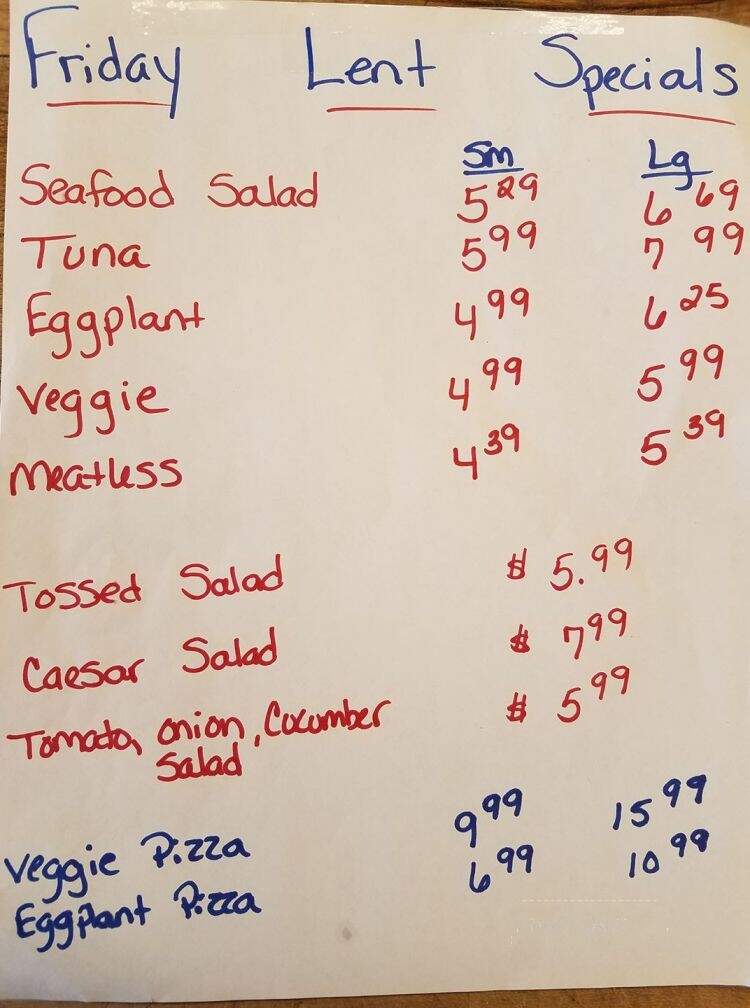 Friday Lent Specials
Sm Lg
Seafood Salad 5 29 6 69
Tuna 5 99 7 99
Eggplant 4 99 6 25
Veggie 4 99 5 99
Meatless 4 39 5 39
Tossed Salad $ 5.99
Caesar Salad $ 7 99
Tomato, onion, Cucumber $ 5 99
Salad
Veggie Pizza 9 99 15 99
Eggplant Pizza 6 99 10 99